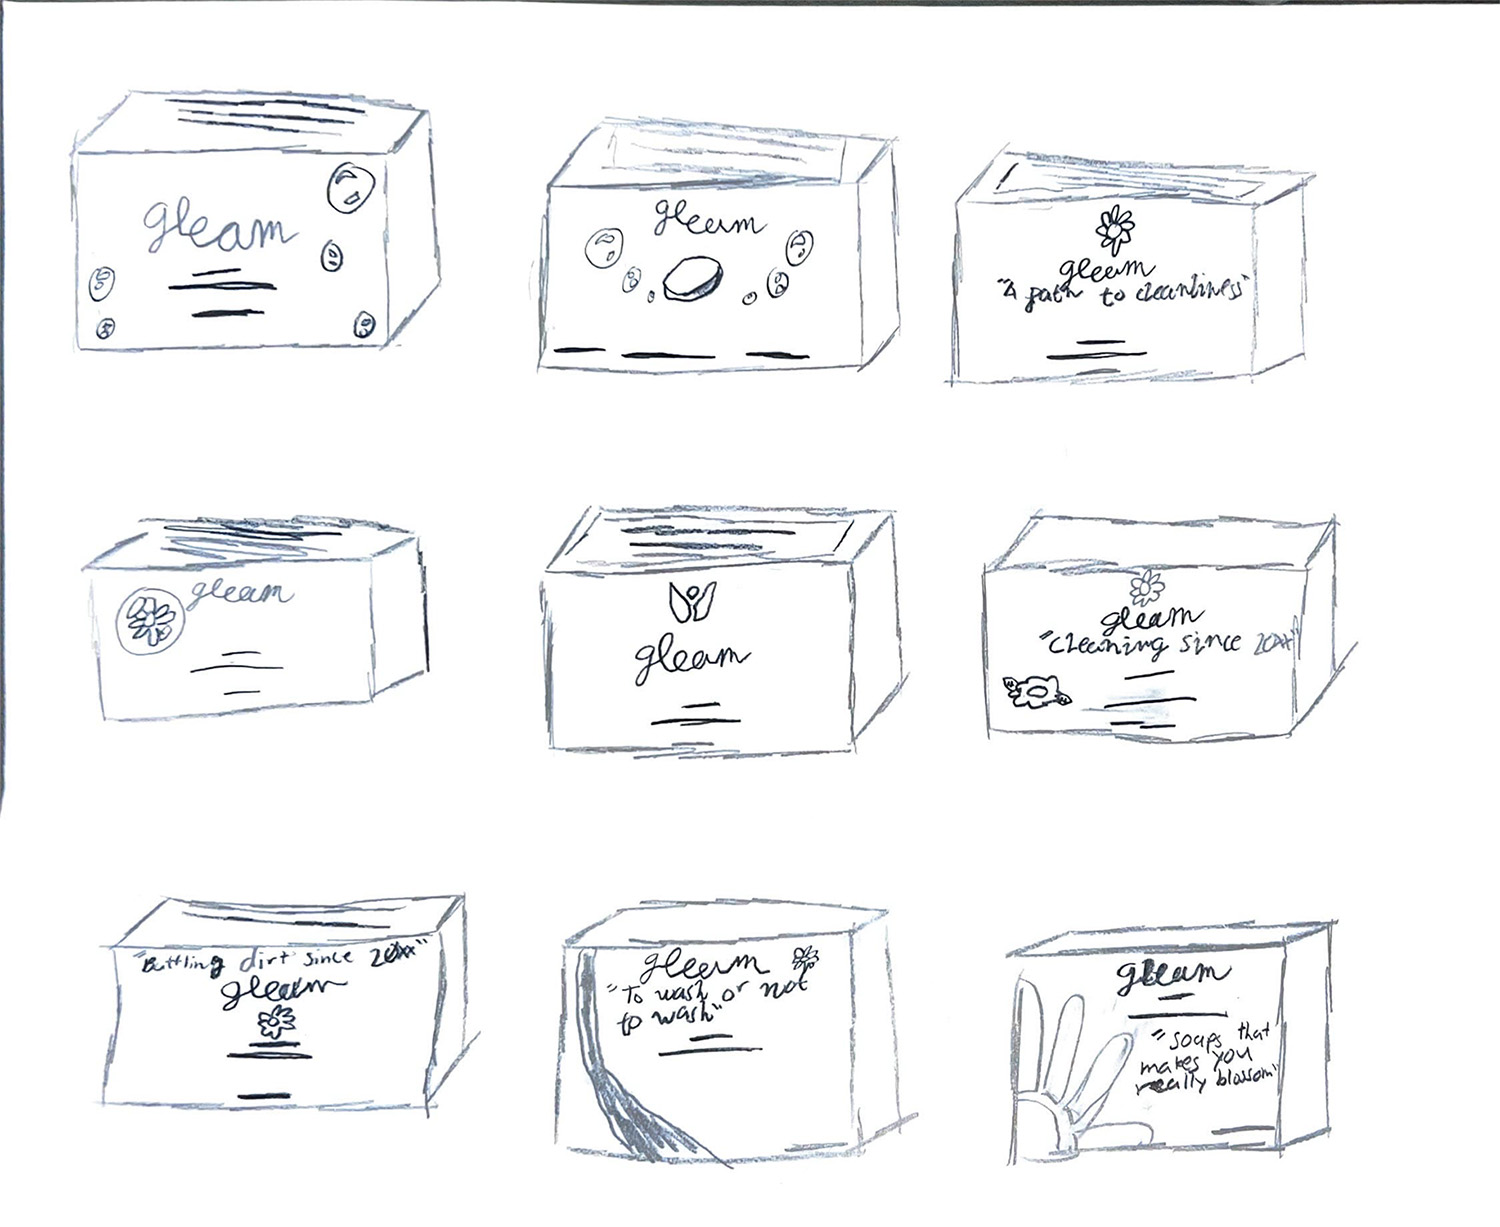 gleam
gleam
gleam
"A path to cleanliness"
gleam
gleam
gleam
"Cleaning since 20xx"
"Battling dirt since 20xx"
gleam
gleam
"To wash or not
to wash"
gleam
"soaps that
makes you
really blossom"